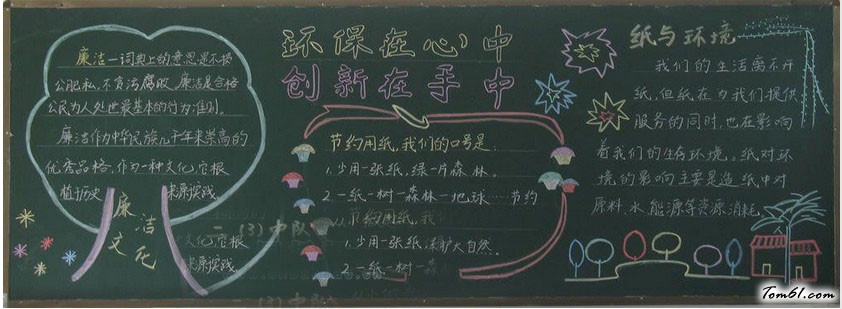 廉洁一词典上的意思是不损
公肥私,不贪污腐败,廉洁是合格
公民为人处世最基本的行为准则。
廉洁作为中华民族几千年来崇高的
优秀品格,作为一种文化,它根
植历史 来源实践
廉洁
文化
文化,它根
来源实践
二、(3)中队
环保在心中
创新在手中
节约用纸,我们的口号是:
1.少用一张纸,绿一片森林。
2.一纸一树一森林一地球……节约
节约用纸,我们
1.少用一张纸,保护大自然。
2.一纸一树一森
二、(3)中队
纸与环境
我们的生活离不开
纸,但纸在为我们提供
服务的同时,也在影响
着我们的生存环境。纸对环
境的影响主要是造纸中对
原料、水、能源等资源消耗
Tom61.com